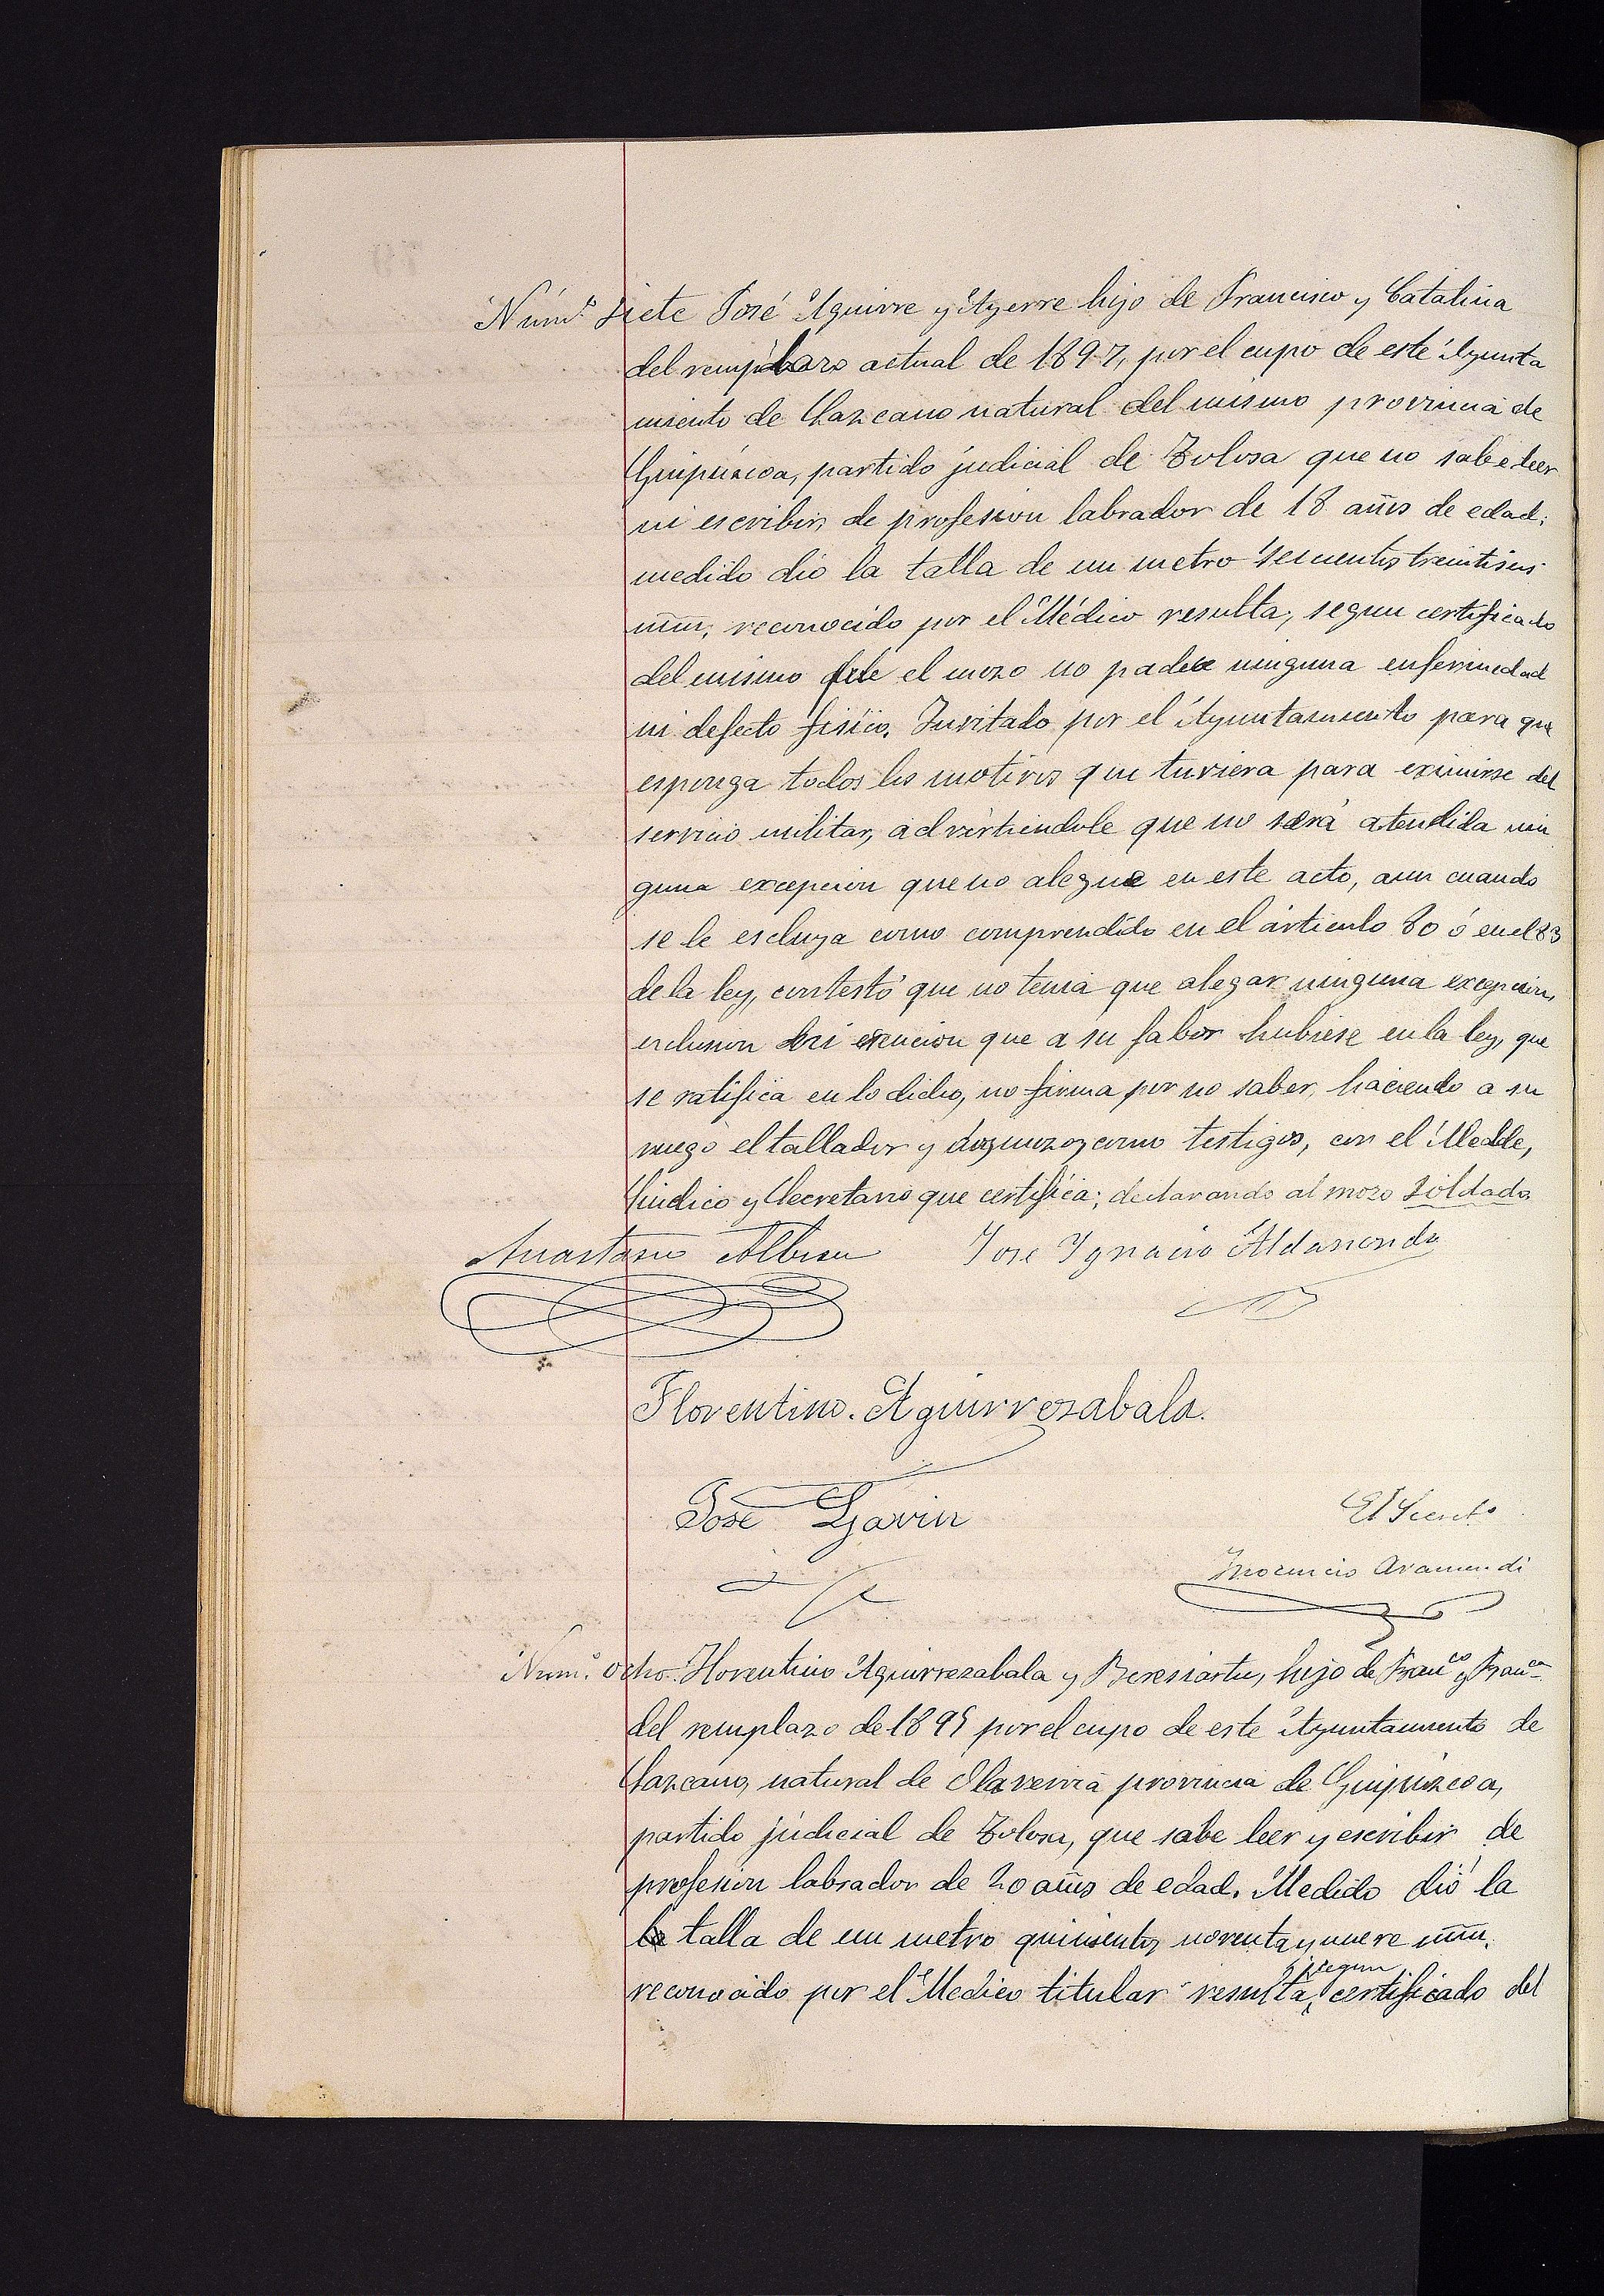 Núm.º siete José Aguirre y Ayerre hijo de Francisco y Catalina
del remplazo actual de 1897, por el cupo de este Ayunta
miento de Lazcano natural del mismo provincia de
Guipúzcoa, partido judicial de Tolosa que no sabe leer
ni escribir, de profesion labrador de 18 años de edad;
medido dio la talla de un metro seicientos treintiseis
mm, reconocido por el Médico resulta, segun certificado
del mismo que el mozo no padece ninguna enfermedad
ni defecto fisico. Invitado por el Ayuntamiento para que
esponga todos los motivos que tuviera para eximirse del
servicio militar, advirtiendole que no será atendida nin
guna excepcion que no alegue en este acto, aun cuando
se le escluya como comprendido en el articulo 80 ó en el 83
de la ley, contestó que no tenia que alegar ninguna excepcion,
exclusion ni exencion que a su fabor hubiese en la ley, que
se ratifica en lo dicho, no firma por no saber, haciendo a su
ruego el tallador y dos mozos como testigos, con el Alcalde,
Sindico y Secretario que certifica; declarando al mozo Soldado
Anastasio Albisu Jose Ygnacio Aldasondo
Florentino. Aguirrezabala.
José Garin
El Secret.o
Inocencio Aramendi
Num.º ocho. Florentino Aguirrezabala y Beresiartu, hijo de Franco y Franca
del remplazo de 1895 por el cupo de este Ayuntamiento de
Lazcano, natural de Olaverria provincia de Guipúzcoa,
partido judicial de Tolosa, que sabe leer y escribir de
profesion labrador de 20 años de edad. Medido dió la
la talla de un metro quinientos noventa y nueve mm.
reconocido por el Medico titular resulta, segun certificado del